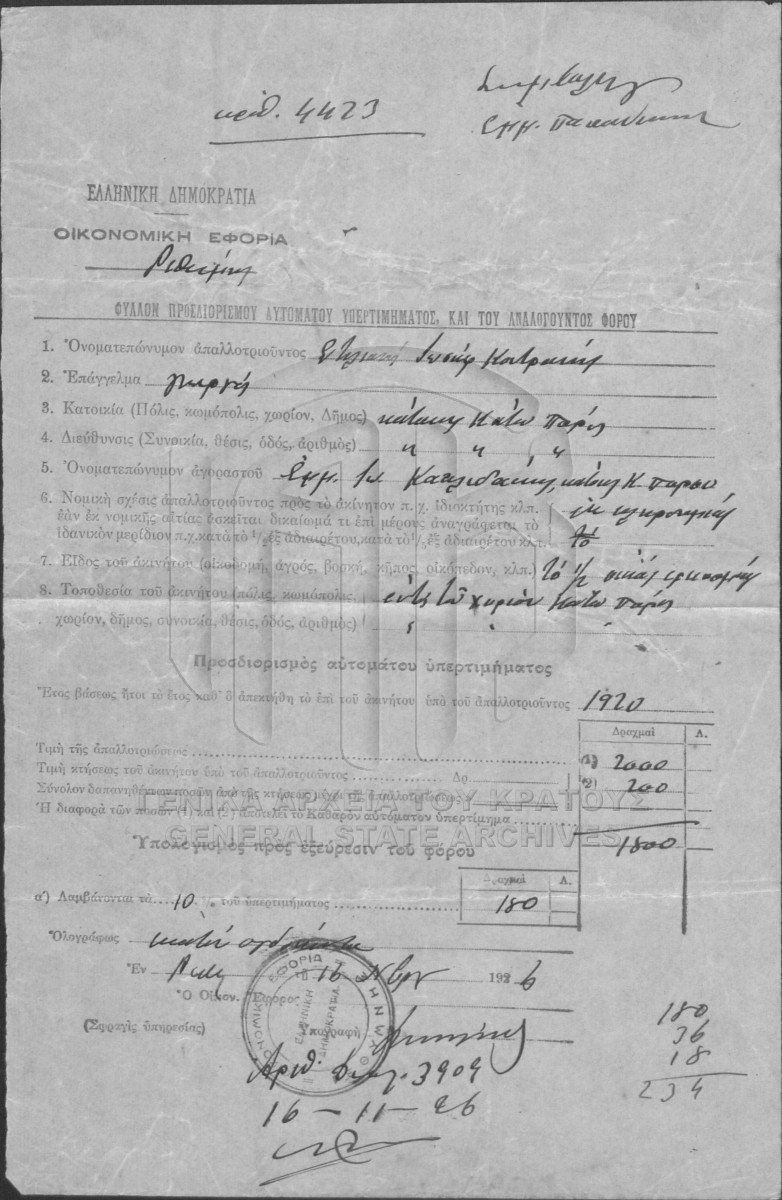 ἀριθ. 4423
ΕΛΛΗΝΙΚΗ ΔΗΜΟΚΡΑΤΙΑ
ΟΙΚΟΝΟΜΙΚΗ ΕΦΟΡΙΑ
ΦΥΛΛΟΝ ΠΡΟΣΔΙΟΡΙΣΜΟΥ ΑΥΤΟΜΑΤΟΥ ΥΠΕΡΤΙΜΗΜΑΤΟΣ, ΚΑΙ ΤΟΥ ΑΝΑΛΟΓΟΥΝΤΟΣ ΦΟΡΟΥ
1. Ὀνοματεπώνυμον ἀπαλλοτριοῦντος
2. Ἐπάγγελμα γεωργός
3. Κατοικία (Πόλις, κωμόπολις, χωρίον, Δῆμος) κάτοικος Κάτω Πόρος
4. Διεύθυνσις (Συνοικία, θέσις, ὁδός, ἀριθμός) " " "
5. Ὀνοματεπώνυμον ἀγοραστοῦ Ἐμμ. Ἰω.
6. Νομικὴ σχέσις ἀπαλλοτριοῦντος πρὸς τὸ ἀκίνητον π. χ. ἰδιοκτήτης κλπ.
ἐὰν ἐκ νομικῆς αἰτίας ἀσκεῖται δικαίωμά τι ἐπὶ μέρους ἀναγράφεται τὸ
ἰδανικὸν μερίδιον π.χ. κατὰ τὸ 1/2 ἐξ ἀδιαιρέτου, κατὰ τὸ 1/5 ἐξ ἀδιαιρέτου κλπ.
7. Εἶδος τοῦ ἀκινήτου (οἰκοδομή, ἀγρός, βοσκή, κῆπος, οἰκόπεδον, κλπ.) τὸ 1/2
8. Τοποθεσία τοῦ ἀκινήτου (πόλις, κωμόπολις, ἐντὸς τοῦ χωρίου Κάτω Πόρος
χωρίον, δῆμος, συνοικία, θέσις, ὁδός, ἀριθμός)
Προσδιορισμὸς αὐτομάτου ὑπερτιμήματος
Ἔτος βάσεως ἤτοι τὸ ἔτος καθ' ὃ ἀπεκτήθη τὸ ἐπὶ τοῦ ἀκινήτου ὑπὸ τοῦ ἀπαλλοτριοῦντος 1920
Δραχμαὶ Λ.
Τιμὴ τῆς ἀπαλλοτριώσεως 1) 2000
Τιμὴ κτήσεως τοῦ ἀκινήτου ὑπὸ τοῦ ἀπαλλοτριοῦντος Δρ
Σύνολον δαπανηθέντων ποσῶν ἀπὸ τῆς κτήσεως μέχρι τῆς ἀπαλλοτριώσεως 2) 200
Ἡ διαφορὰ τῶν ποσῶν (1) καὶ (2) ἀποτελεῖ τὸ Καθαρὸν αὐτόματον ὑπερτίμημα 1800
ΓΕΝΙΚΑ ΑΡΧΕΙΑ ΤΟΥ ΚΡΑΤΟΥΣ
GENERAL STATE ARCHIVES
Ὑπολογισμὸς πρὸς ἐξεύρεσιν τοῦ φόρου
Δραχμαὶ Λ.
α') Λαμβάνονται τὰ 10 % τοῦ ὑπερτιμήματος 180
Ὁλογράφως ἑκατὸν ὀγδοήκοντα
Ἐν τῇ 16 Νβρίου 1926
Ὁ Οἰκον. Ἔφορος
(Σφραγὶς ὑπηρεσίας) Ὑπογραφὴ
ΕΛΛΗΝΙΚΗ
ΔΗΜΟΚΡΑΤΙΑ
180
36
18
234
Ἀριθ. 3909
16-11-26